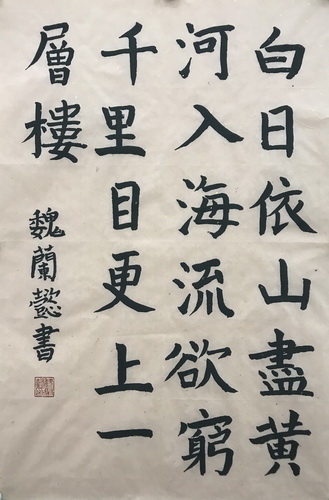 白日依山盡黃
河入海流欲窮
千里目更上一
層樓
魏蘭懿書